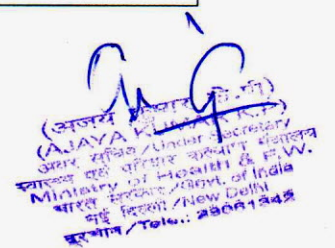 (अजय कुमार के.पी.)
(AJAYA KUMAR K.P.)
अवर सचिव/Under Secretary
स्वास्थ्य एवं परिवार कल्याण मंत्रालय
Ministry of Health & F.W.
भारत सरकार/Govt. of India
नई दिल्ली/New Delhi
दूरभाष/Tele.: